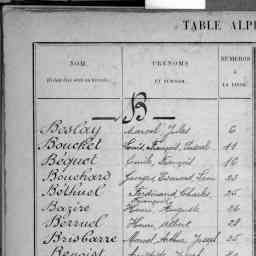 TABLE ALP
NOM.
PRÉNOMS
ET SURNOM.
NUMÉROS
À
— B —
Boslay Marcel Jules 6
Bouchet Louis François 10
Béguet Emile François 16
Bouchard Georges Edmond 23
Béthuel Ferdinand Charles François 25
Bazire Henri Auguste 26
Berruel Henri Albert 28
Brisbarre Marcel Arthur Joseph 35
Benoist